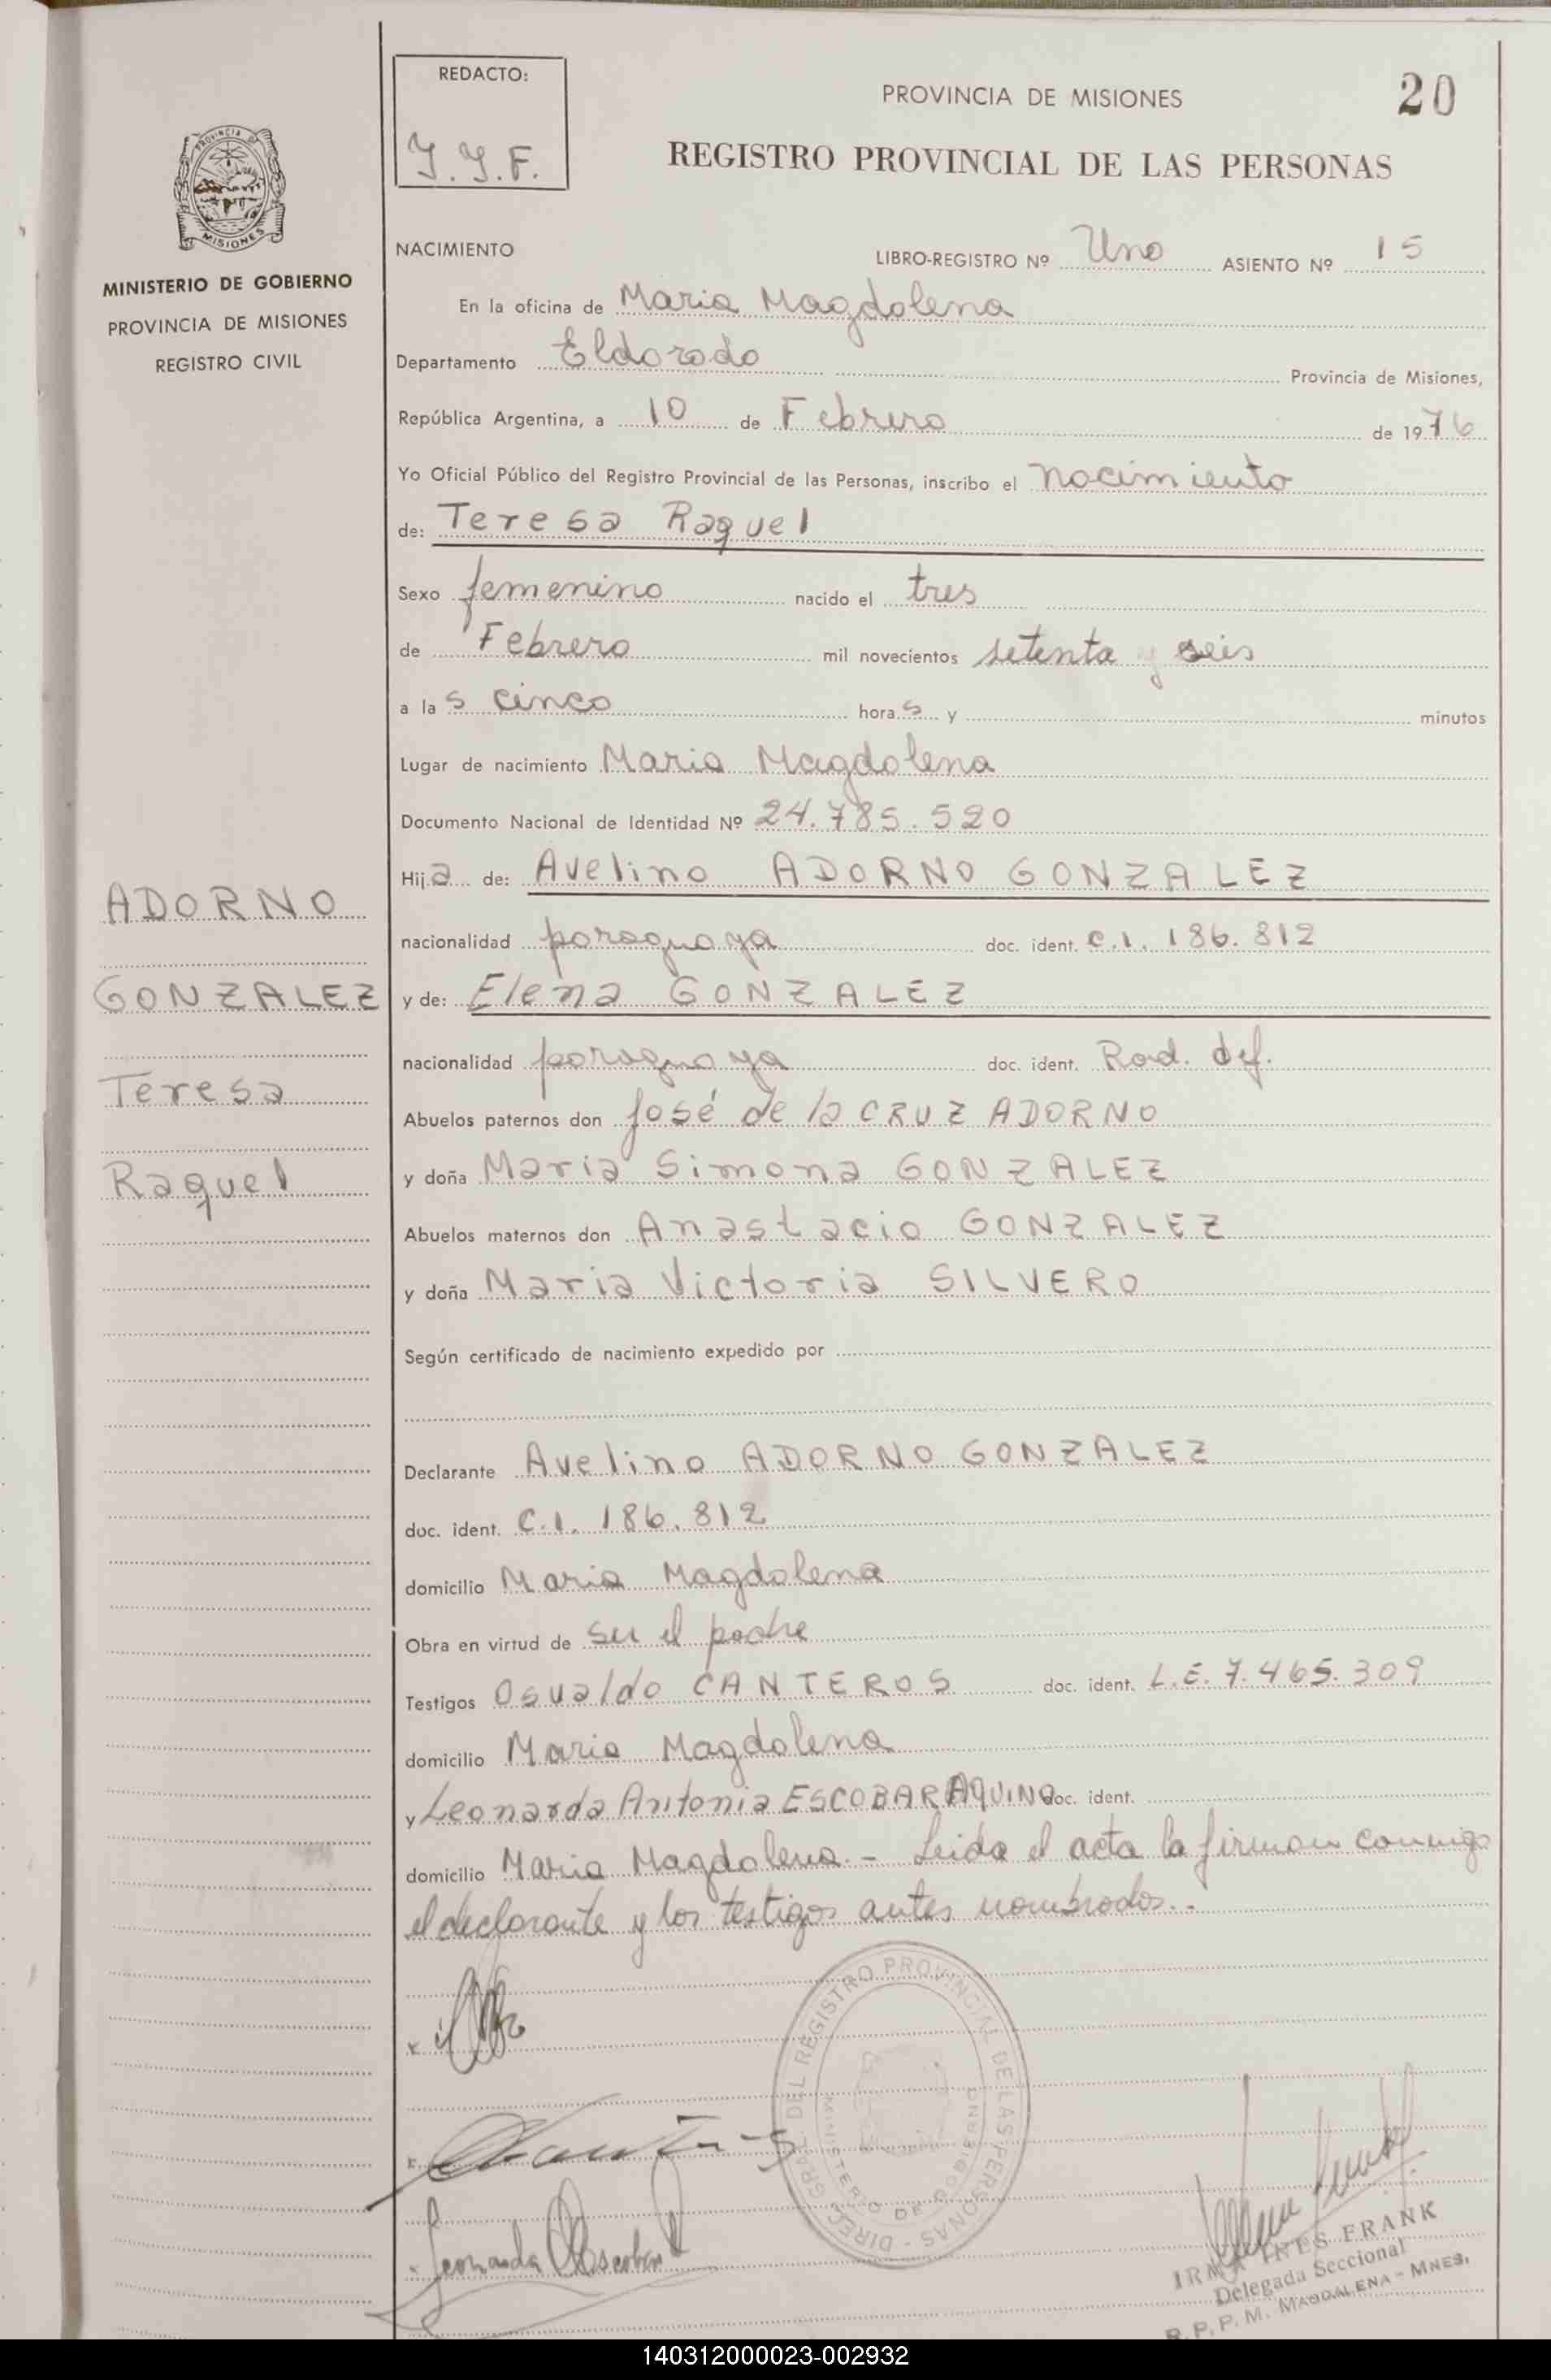 REDACTO:
J.J.F.
PROVINCIA DE MISIONES
20
REGISTRO PROVINCIAL DE LAS PERSONAS
PROVINCIA DE
MISIONES
MINISTERIO DE GOBIERNO
PROVINCIA DE MISIONES
REGISTRO CIVIL
NACIMIENTO
LIBRO-REGISTRO Nº Uno ASIENTO Nº 15
En la oficina de Maria Magdalena
Departamento Eldorado Provincia de Misiones,
República Argentina, a 10 de Febrero de 1976
Yo Oficial Público del Registro Provincial de las Personas, inscribo el nacimiento
de: Teresa Raquel
Sexo femenino nacido el tres
de Febrero mil novecientos setenta y seis
a las cinco horas y minutos
Lugar de nacimiento Maria Magdalena
Documento Nacional de Identidad Nº 24.785.520
Hija de: Avelino ADORNO GONZALEZ
nacionalidad paraguaya doc. ident. C.I. 186.812
y de: Elena GONZALEZ
nacionalidad paraguaya doc. ident. Rad. def.
Abuelos paternos don José de la CRUZ ADORNO
y doña Maria Simona GONZALEZ
Abuelos maternos don Anastacio GONZALEZ
y doña Maria Victoria SILVERO
Según certificado de nacimiento expedido por
Declarante Avelino ADORNO GONZALEZ
doc. ident. C.I. 186.812
domicilio Maria Magdalena
Obra en virtud de ser el padre
Testigos Osvaldo CANTEROS doc. ident. L.E. 7.465.309
domicilio Maria Magdalena
y Leonarda Antonia ESCOBAR AQUINO doc. ident.
domicilio Maria Magdalena.- Leida el acta la firman conmigo
el declarante y los testigos antes nombrados.-
ADORNO
GONZALEZ
Teresa
Raquel
DIREC. GRAL. DEL REGISTRO PROVINCIAL DE LAS PERSONAS -
MINISTERIO DE GOBIERNO
Leonarda A Escobar
IRMA INES FRANK
Delegada Seccional
R.P.P. M. MAGDALENA - MNES.
140312000023-002932